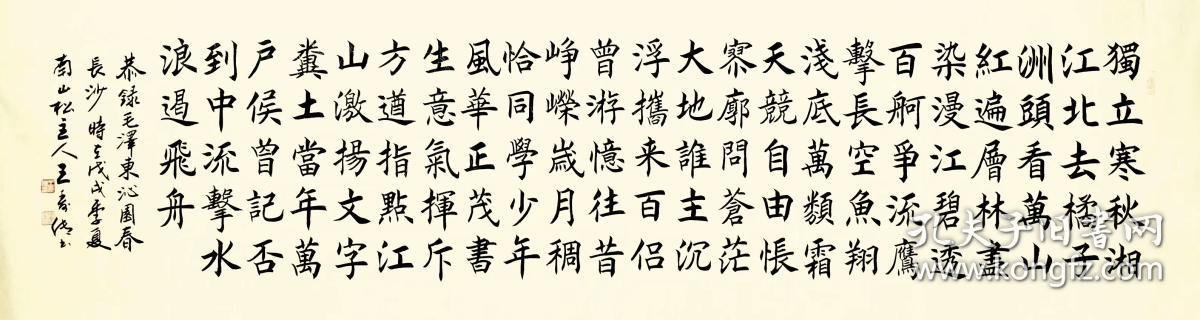 獨立寒秋湘
江北去橘子
洲頭看萬山
紅遍層林盡
染漫江碧透
百舸爭流鷹
擊長空魚翔
淺底萬類霜
天競自由悵
寥廓問蒼茫
大地誰主沉
浮攜来百侣
曾游憶往昔
崢嶸歲月稠
恰同學少年
風華正茂書
生意氣揮斥
方遒指點江
山激揚文字
糞土當年萬
户侯曾記否
到中流擊水
浪遏飛舟
恭録毛澤東沁園春
長沙時在戊戌季夏
南山松主人王
孔夫子旧书网
www.kongfz.com